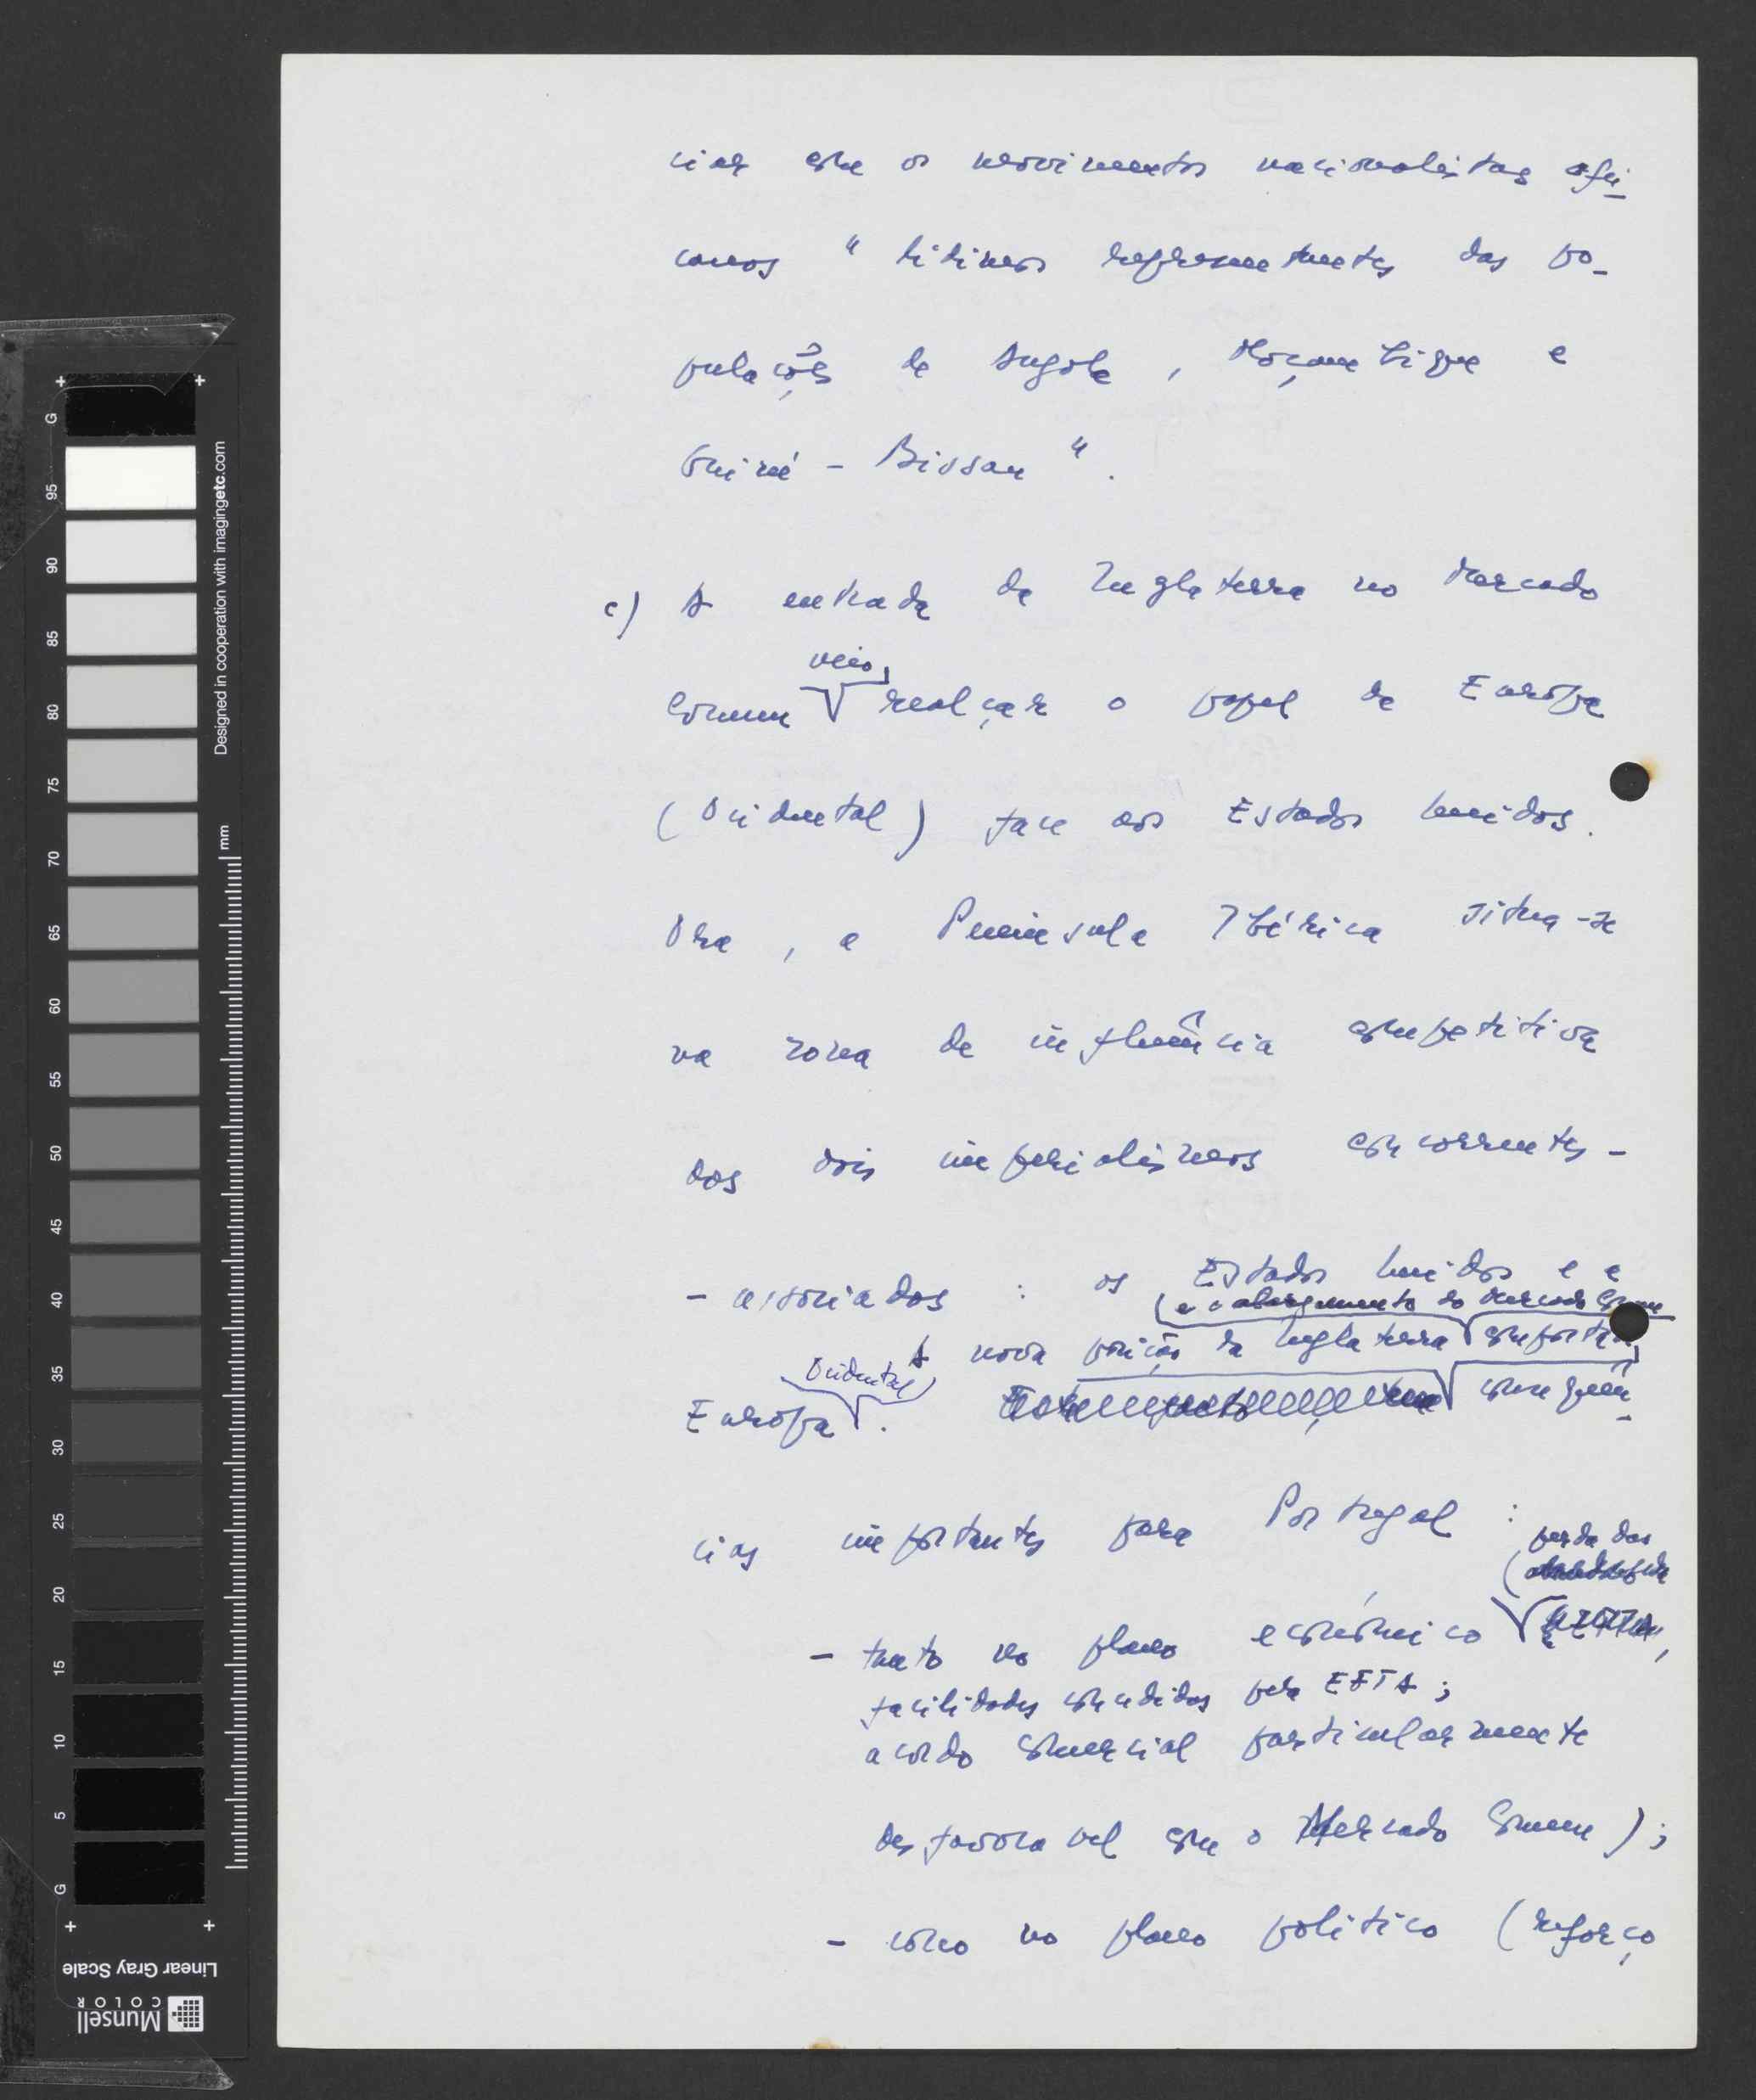 ciar com os movimentos nacionalistas afri-
canos "legítimos representantes das po-
pulações de Angola, Moçambique e
Guiné-Bissau".
c) A entrada da Inglaterra no Mercado
veio
Comum realçar o papel da Europa
(Ocidental) face aos Estados Unidos.
Ora, a Península Ibérica situa-se
na zona de influência competitiva
dos dois imperialismos concorrentes-
- associados : os Estados Unidos e a
(e o alargamento do Mercado Comum
A nova posição da Inglaterra comporta
Ocidental
Europa. consequên-
cias importantes para Portugal :
perda das
- tanto no plano económico
facilidades concedidas pela EFTA;
acordo comercial particularmente
desfavoravel com o Mercado Comum);
- como no plano politico (reforço
Designed in cooperation with imagingetc.com
mm
G 95 90 85 80 75 70 65 60 55 50 45 40 35 30 25 20 15 10 5 G
Linear Gray Scale
Munsell
COLOR